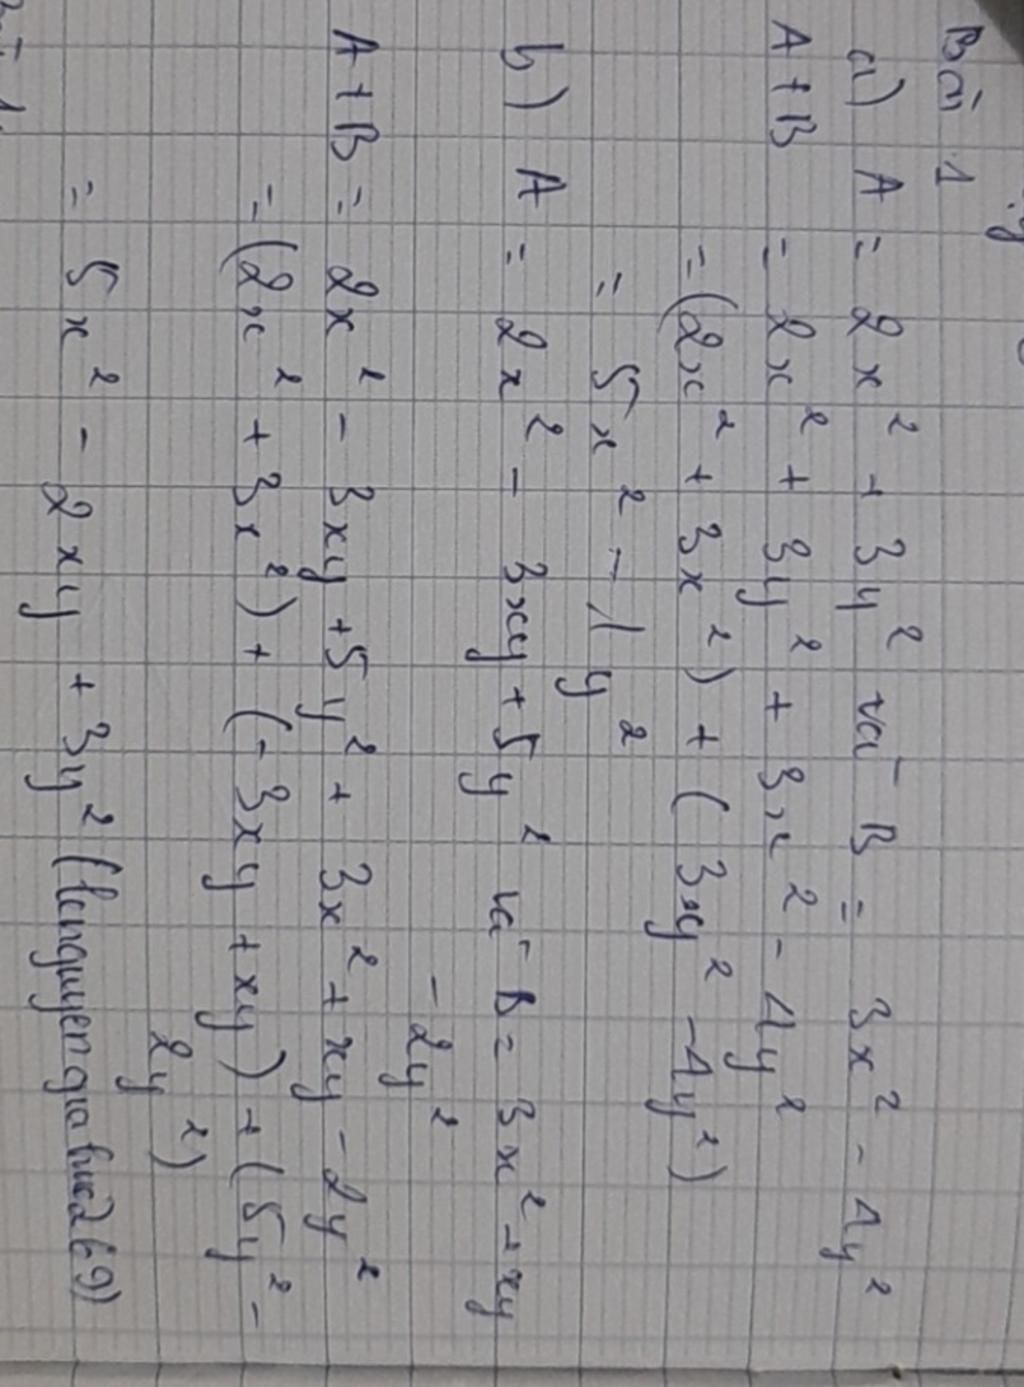 Bài 1
a) A = 2x² + 3y² và B = 3x² - 4y²
A + B = 2x² + 3y² + 3x² - 4y²
= (2x² + 3x²) + (3y² - 4y²)
= 5x² - 1y²
b) A = 2x² - 3xy + 5y² và B = 3x² + xy
- 2y²
A + B = 2x² - 3xy + 5y² + 3x² + xy - 2y²
= (2x² + 3x²) + (-3xy + xy) + (5y² -
2y²)
= 5x² - 2xy + 3y²